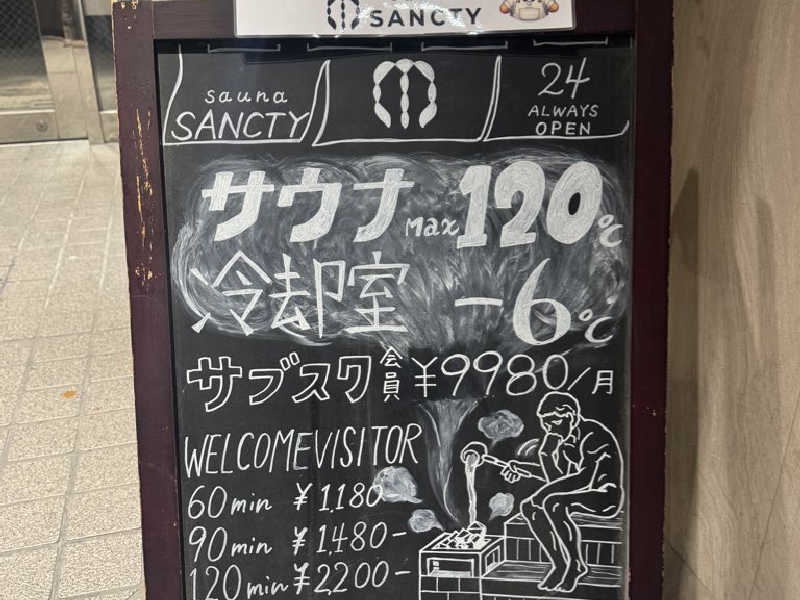 SANCTY
sauna
SANCTY
24
ALWAYS
OPEN
サウナ Max 120℃
冷却室 -6℃
サブスク会員 ¥9980/月
WELCOMEVISITOR
60min ¥1,180
90min ¥1,480-
120min ¥2,200-